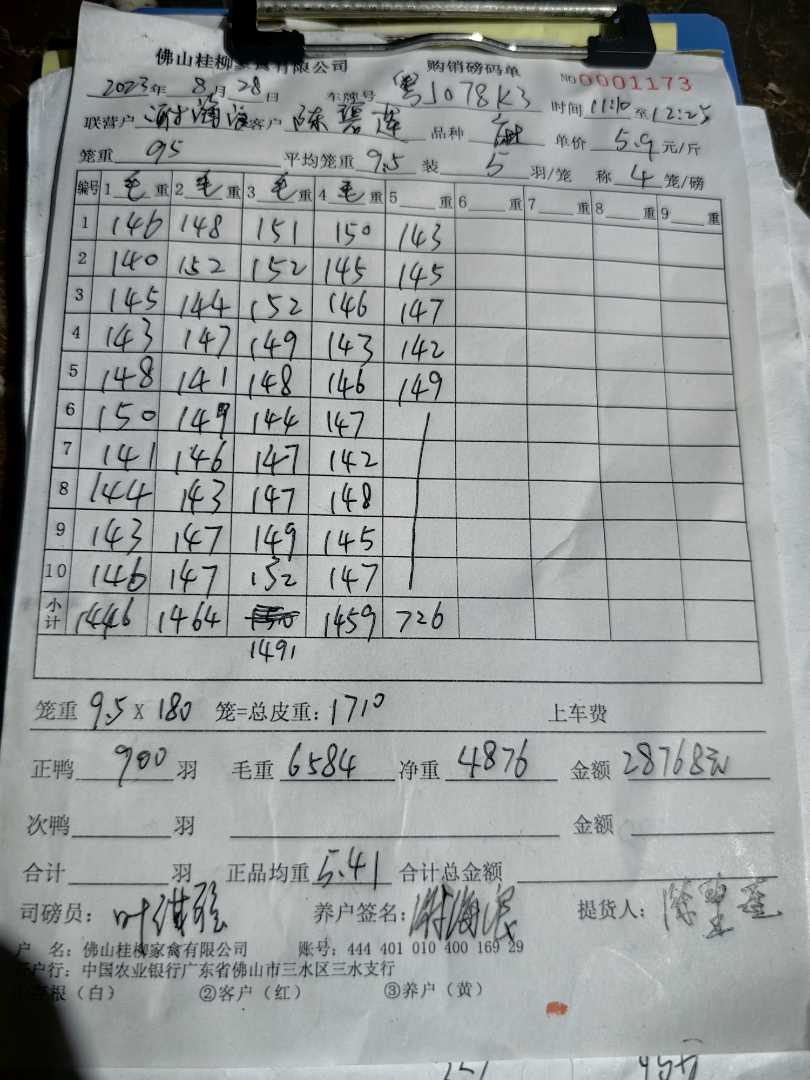 佛山桂柳家禽有限公司 购销磅码单 NO 0001173
2023年 8月 28日 车牌号 粤J078K3 时间 11:10 至 12:25
联营户 客户 陈 莲 品种 单价 5.9 元/斤
笼重 95 平均笼重 9.5 装 5 羽/笼 称 4 笼/磅
编号 1 毛 重 2 毛 重 3 毛 重 4 毛 重 5 重 6 重 7 重 8 重 9 重
1 146 148 151 150 143
2 140 152 152 145 145
3 145 144 152 146 147
4 143 147 149 143 142
5 148 141 148 146 149
6 150 149 144 147
7 141 146 147 142
8 144 143 147 148
9 143 147 149 145
10 146 147 152 147
小计 1446 1464 1459 726
1491
笼重 9.5 X 180 笼=总皮重: 1710 上车费
正鸭 900 羽 毛重 6584 净重 4876 金额 28768元
次鸭 羽 金额
合计 羽 正品均重 5.41 合计总金额
司磅员: 养户签名: 提货人:
户 名: 佛山桂柳家禽有限公司 账号: 444 401 010 400 169 29
户行: 中国农业银行广东省佛山市三水区三水支行
根（白） ②客户（红） ③养户（黄）